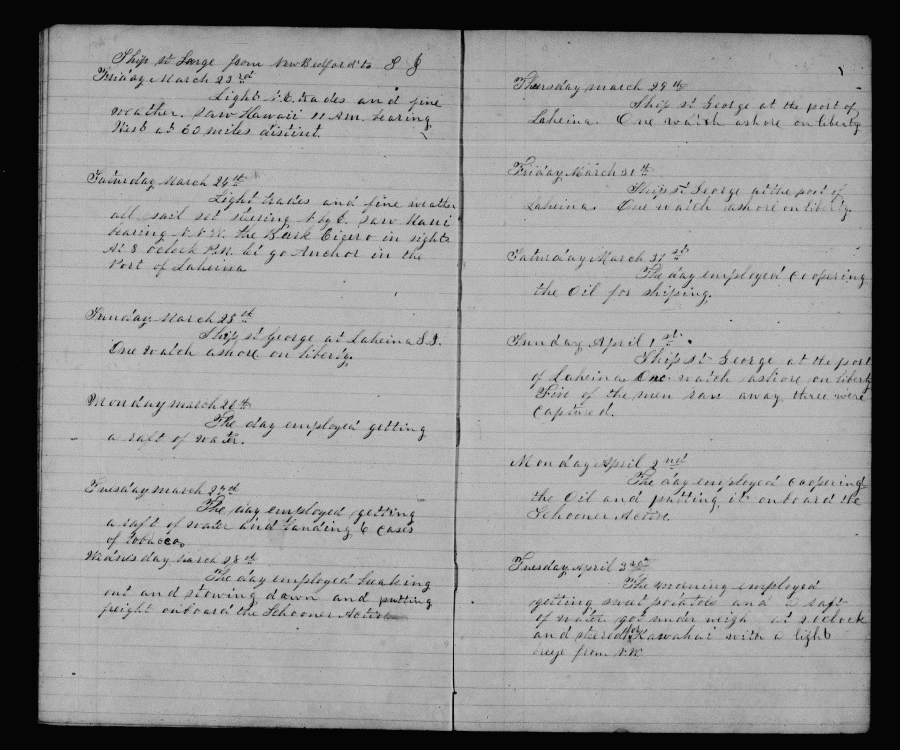 Ship St George from New Bedford to S J
Friday March 23rd
Light N.E. trades and fine
weather. saw Hawaii 11 A.m. bearing
West at 60 miles distint.
Saturday March 24th
Light trades and fine weather
all sail set stering N by E. saw Maui
bearing N.N.W. the Bark Cicero in sight
At 8 oclock P.M. let go Anchor in the
Port of Laheina
Sunday March 25th
Ship St George at Laheina S.I.
One watch ashore on liberty.
Monday march 26th
The day employed getting
a raft of water.
Tuesday march 27th
The day employed getting
a raft of water and landing 6 cases
of tobacco.
Wednesday March 28th
The day employed breaking
out and stowing down and putting
freight onboard the Schooner Active
Thursday march 29th
Ship St George at the port of
Laheina. One watch ashore on liberty
Friday March 30th
Ship St George at the port of
Laheina. One watch ashore on liberty.
Saturday March 31st
The day employed coopering
the Oil for shiping.
Sunday April 1st.
Ship St George at the port
of Laheina. One watch ashore on liberty
Five of the men ran away three were
captured.
Monday April 2nd
The day employed coopering
the Oil and putting it onboard the
Schooner Active.
Tuesday April 3rd
The morning employed
getting sweet potatoes and a raft
of water got under weigh at oclock
and stered for Kawahai with a light
breeze from N.W.